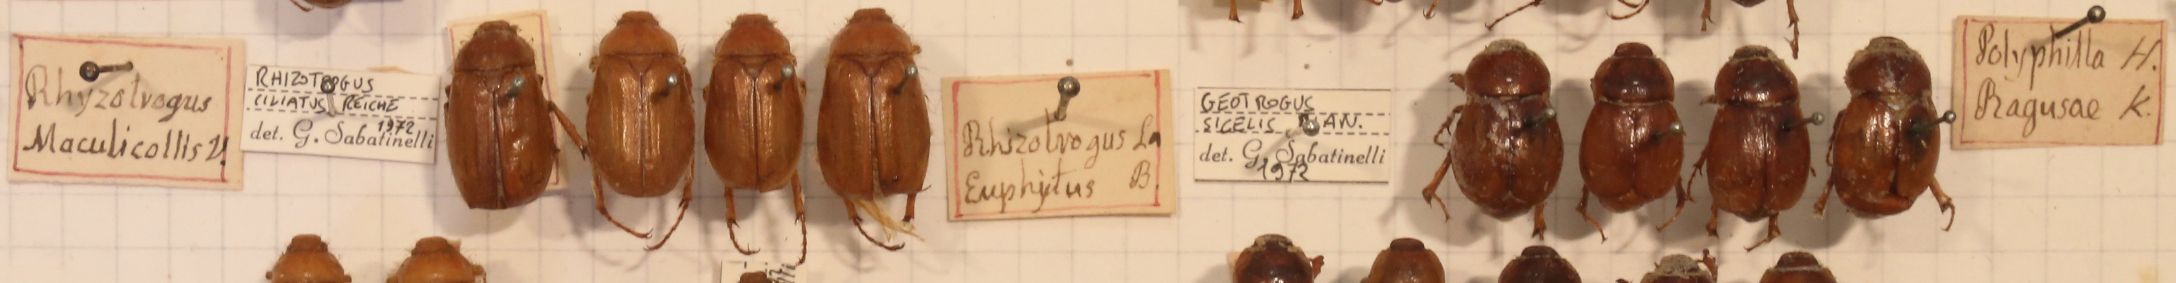 Rhyzotrogus
Maculicollis V.
RHIZOTROGUS
CILIATUS REICHE
1972
det. G. Sabatinelli
Rhizotrogus La
Euphytus B.
GEOTROGUS
SICELIS
det. G. Sabatinelli
1972
Polyphilla H.
Ragusae K.